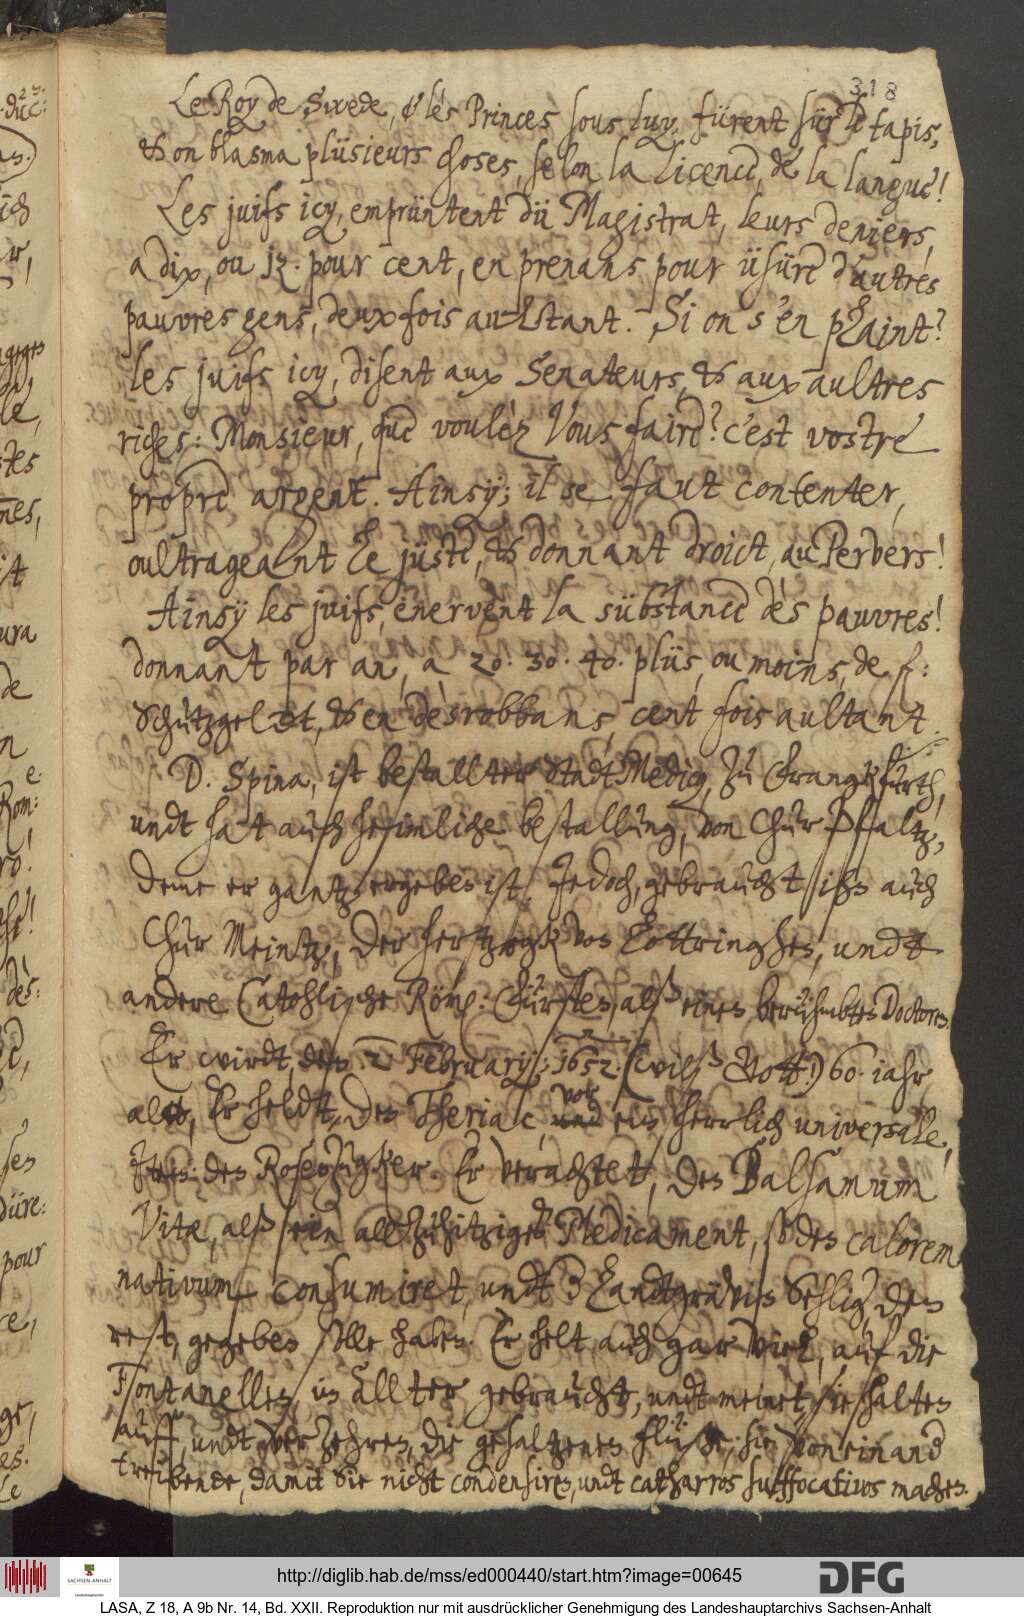 318
Le Roy de Swede, & lés Princes sous luy, fürent sür le tapis,
& on blasma plüsieurs choses, selon la licence, de la langue!
Les juifs icy, emprüntent dü Magistrat, leurs deniers,
a dix, ou 12. pour cent, en prenans pour üsüre d'autres
pauvres gens, deux fois aultant. Si on s'en plaint?
les juifs icy, disent aux Senateurs, & aux aultres
riches: Monsieur, que voulèz Vous faire? c'est vostre
propre argent. Ainsy; il se faut contenter,
oultrageant le jüste, & donnant droict, au Pervers!
Ainsy les juifs, enervent la sübstance dès pauvres!
donnant par an, a 20. 30. 40. plüs, ou moins, de f:
Schützgeldt, & en desrobbans, cent fois aultant.
D. Spina, ist bestallter StadtMedicus, zu Franckfurth,
undt hat auch heimliche bestallung, von ChurPfaltz,
deme er gantz ergeben ist, Jedoch, gebraucht ihn auch
Chur Meintz, der hertzogk von Lottringhen, undt
andere Catohlische Röm: Fürsten, alß einen berühmbten Doctoren.
Er wirdt, den 2. February; 1652. (wilß Gott!) 60. iahr
alt, Er heldt, den Theriac, vor ein herrlich universale,
den Rosen Er verachtet, den Balsamum
Vitæ, alß ein allzuhitziges Medicament, so den calorem
nativum consumiret, undt Landtgraven Sehlig, den
rest, gegeben solle haben. Er helt auch gar viel, auf die
Fontanellen, im alter gebraucht, undt meinet, sie halten
auf, undt verzehren, die gesaltzenen flüße, sie voneinand
treibende, damit Sie nicht condensiren, undt catharros suffocativos machen.
http://diglib.hab.de/mss/ed000440/start.htm?image=00645
DFG
SACHSEN-ANHALT
Landeshauptarchiv
LASA, Z 18, A 9b Nr. 14, Bd. XXII. Reproduktion nur mit ausdrücklicher Genehmigung des Landeshauptarchivs Sachsen-Anhalt